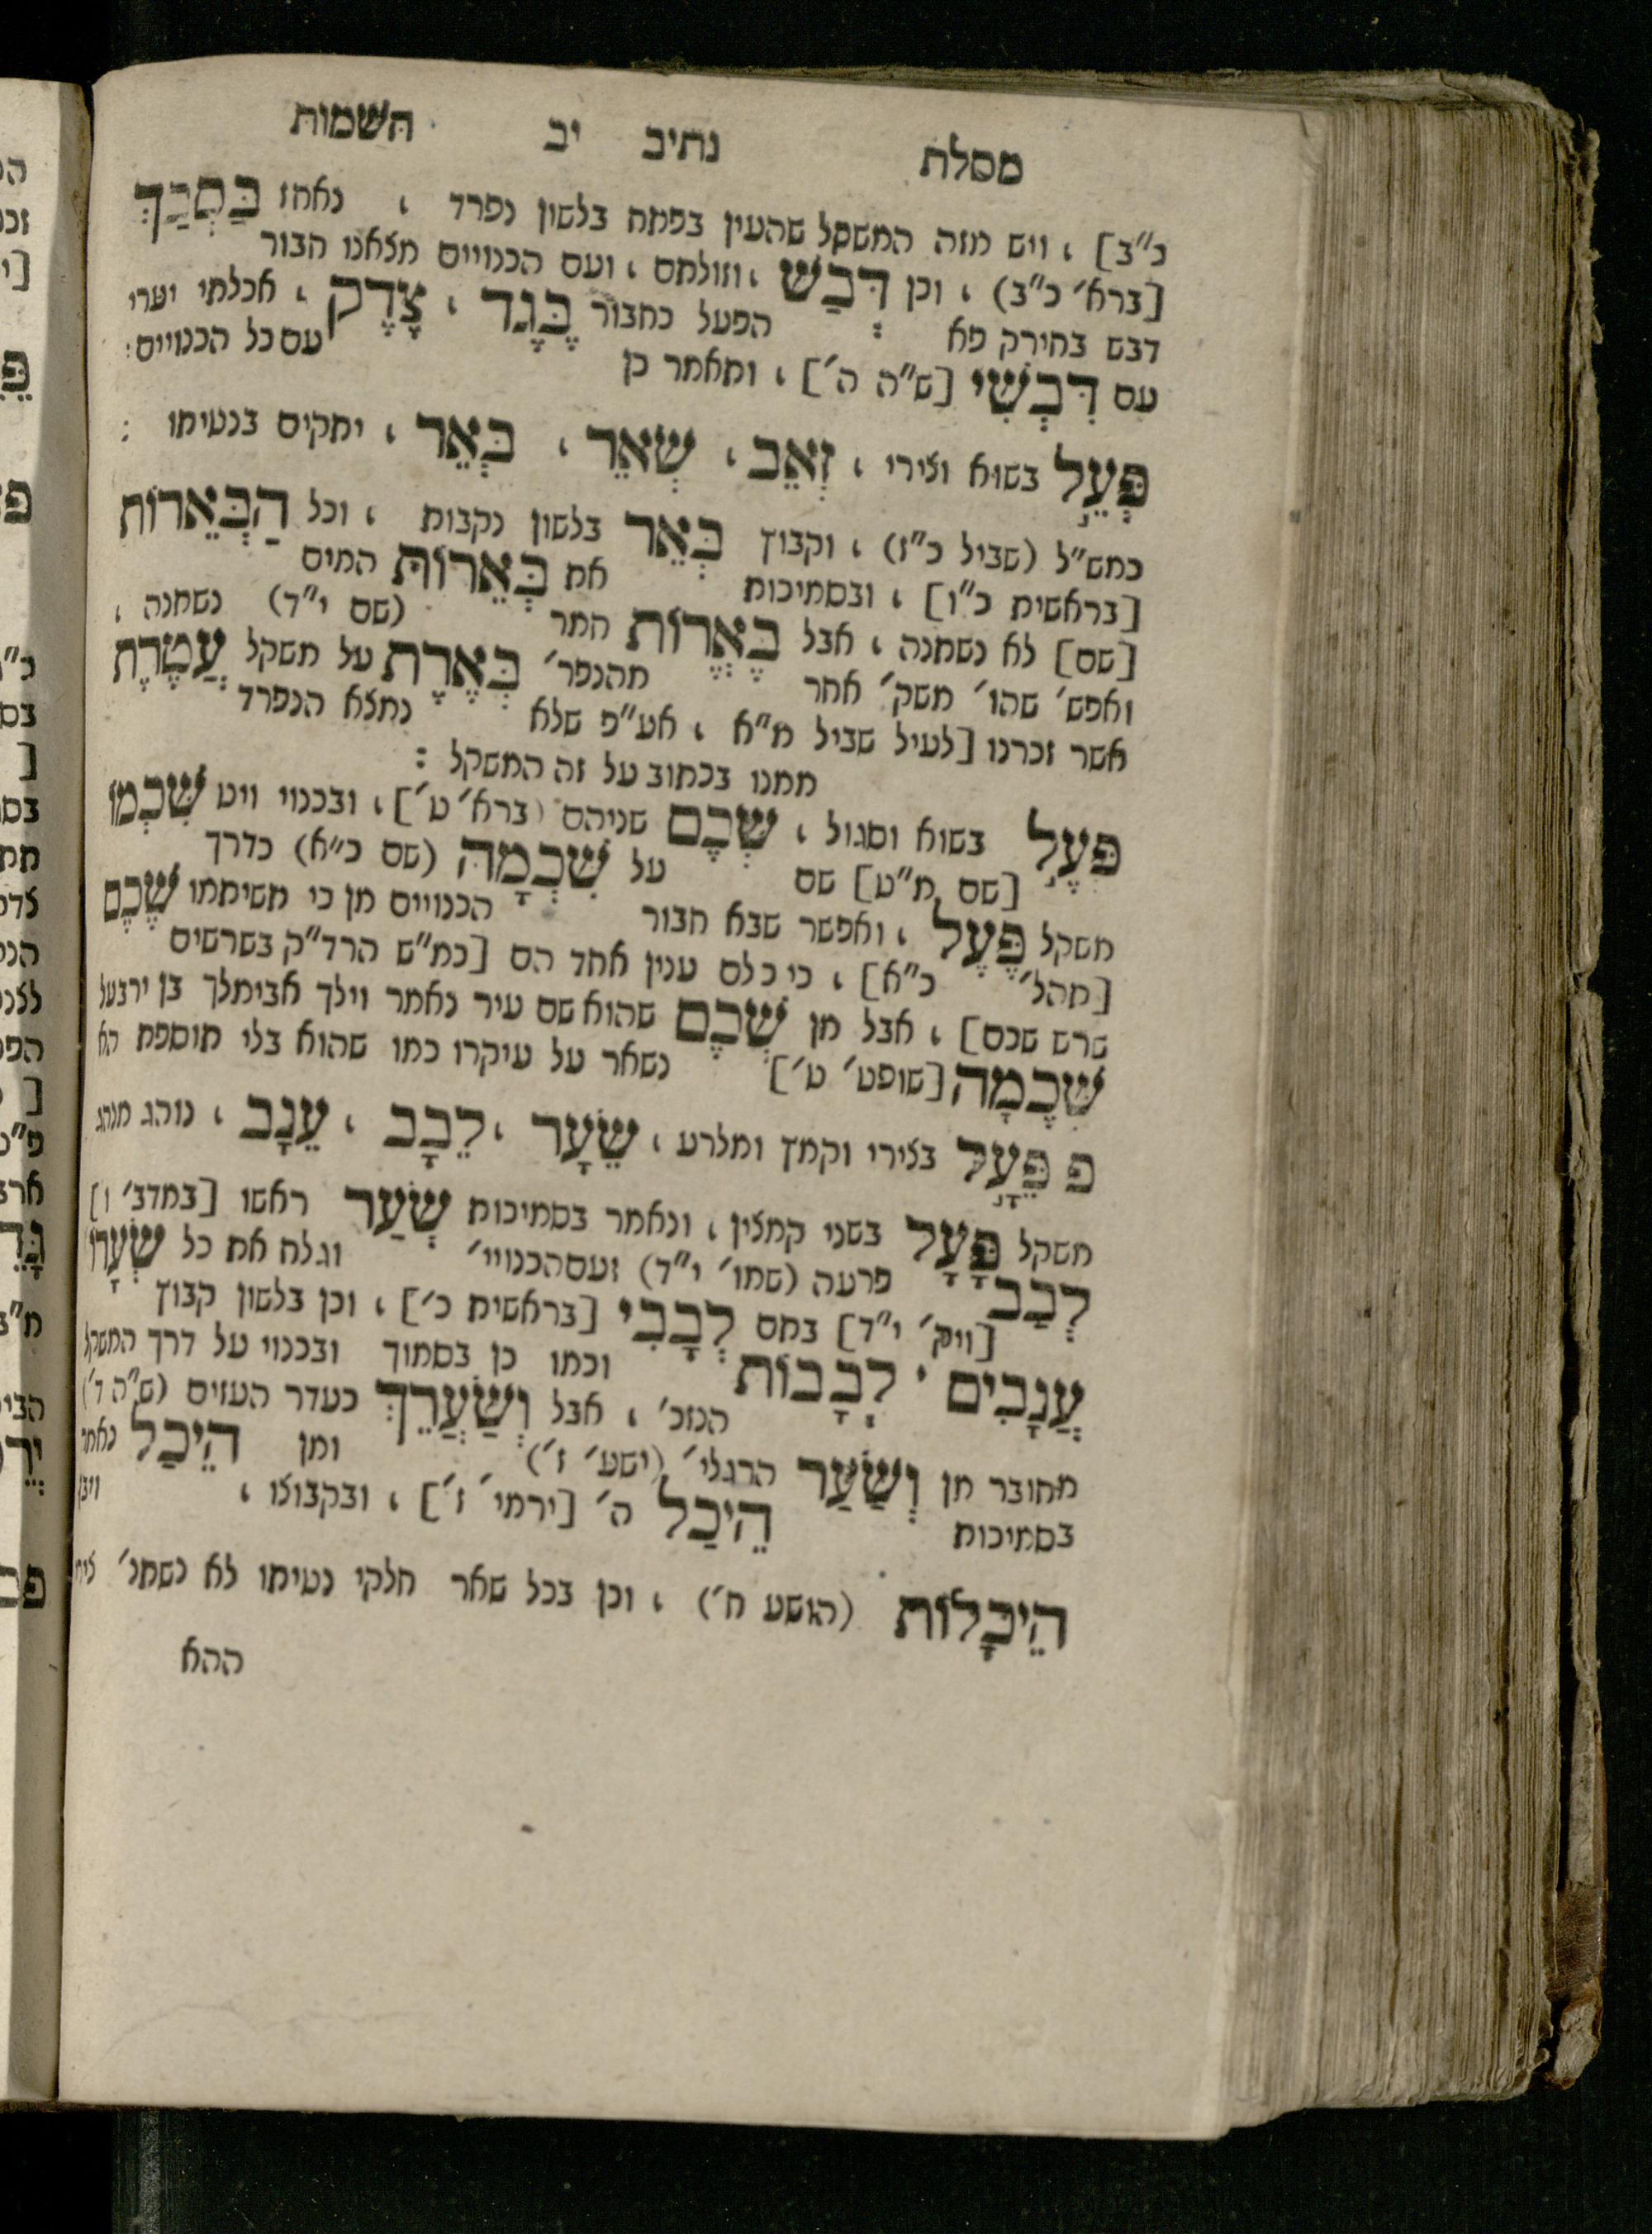 מסלת נתיב יב השמות
כ"ב] , ויש מזה המשקל שהעין בפתח בלשון נפרד , נאחז בַּסְּבַךְ
[ברא' כ"ב) , וכן דְּבַשׁ , וזולתם , ועם הכנויים מצאנו חבור
דבש בחירק פא הפעל כחבור בֶּגֶד , צֶדֶק , אכלתי יערי
עם דִּבְשִׁי [ש"ה ה'] , ותאמר כן עם כל הכנויים :
פְּעֵל בשוא וצירי , זְאֵב , שְׂאֵר , בְּאֵר , יתקים בנטיתו :
כמש"ל (שביל כ"ז) , וקבוץ בְּאֵר בלשון נקבות , וכל הַבְּאֵרוֹת
[בראשית כ"ו] , ובסמיכות את בְּאֵרוֹת המים
[שם] לא נשתנה , אבל בֶּאֱרוֹת חמר (שם י"ד) נשתנה ,
ואפש' שהו' משק' אחר מהנפר' בְּאֶרֶת על משקל עֲטֶרֶת
אשר זכרנו [לעיל שביל מ"א , אע"פ שלא נמצא הנפרד
ממנו בכתוב על זה המשקל :
פְּעֶל בשוא וסגול , שְׁכֶם שניהם (ברא' ט'] , ובכנוי ויט שִׁכְמוֹ
[שם מ"ט] שם על שִׁכְמָהּ (שם כ"א) כדרך
משקל פֶּעֶל , ואפשר שבא חבור הכנויים מן כי תשיתמו שֶׁכֶם
[תהל' כ"א] , כי כלם ענין אחד הם [כמ"ש הרד"ק בשרשים
שרש שכם] , אבל מן שְׁכֶם שהוא שם עיר נאמר וילך אבימלך בן ירבעל
שְׁכֶמָה [שופט' ט'] נשאר על עיקרו כמו שהוא בלי תוספת הא
פ פֵּעָל בצירי וקמץ ומלרע , שֵׂעָר , לֵבָב , עֵנָב , נוהג מנהג
משקל פָּעָל בשני קמצין , ונאמר בסמיכות שְׂעַר ראשו [במדב' ו]
לְבַב פרעה (שמו' י"ד) ועם הכנויי' וגלח את כל שְׂעָרוֹ
[ויק' י"ד] בתם לְבָבִי [בראשית כ'] , וכן בלשון קבוץ
עֲנָבִים ' לְבָבוֹת וכמו כן בסמוך ובכנוי על דרך המשקל
הנזכ' , אבל וְשַׂעֲרֵךְ כעדר העזים (ש"ה ד')
מחובר מן וְשַׂעַר הרגלי' (ישע' ז') ומן הֵיכַל נאמר
בסמיכות הֵיכַל ה' [ירמי' ז'] , ובקבוצו , ויבן
הֵיכָלוֹת (הושע ח') , וכן בכל שאר חלקי נטיתו לא נשתנ'
ההא